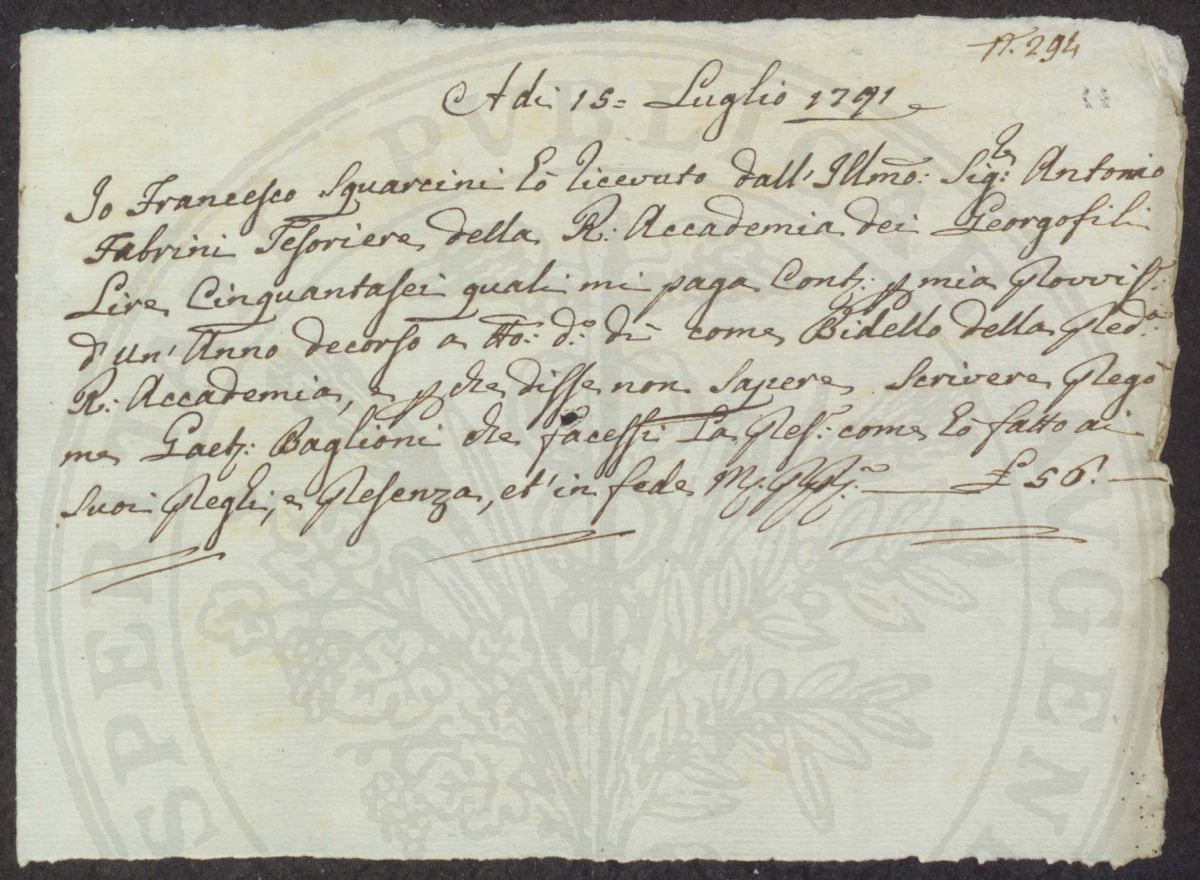 N. 294
Adi 15= Luglio 1791
Io Francesco Squarcini hò ricevuto dall'Illmo: Sigr: Antonio
Fabrini Tesoriere della R: Accademia dei Georgofili
Lire Cinquantasei quali mi paga Contj: p mia Provvisne:
d'un'Anno decorso a tto: do: dì come Bidello della Preda:
R: Accademia, e p che disse non sapere scrivere pregò
me Gaetj: Baglioni che facessi la Presj: come hò fatto ai
suoi Preghi, e Presenza, et in fede
£ 56.
PVBLICAE
PROSPERITATIS AVGENDAE